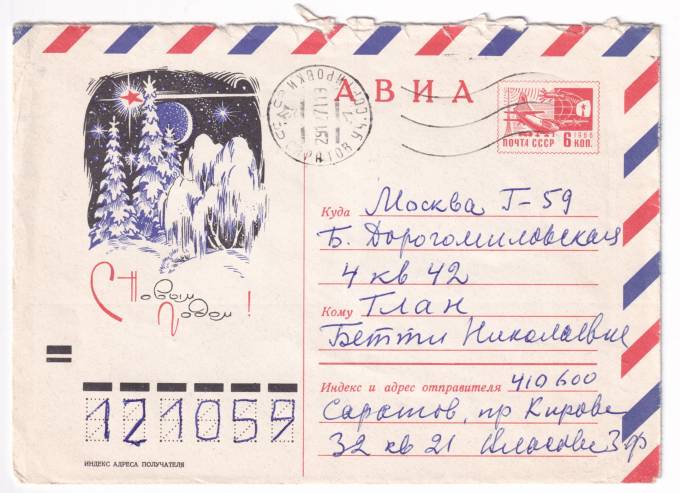 АВИА
ПОЧТА СССР 6 КОП.
1966
С Новым
Годом!
Куда Москва Г-59
Б. Дорогомиловская
4 кв 42
Кому Глан
Бетти Николаевне
Индекс и адрес отправителя 410600
Саратов, пр Кирова
32 кв 21
121059
ИНДЕКС АДРЕСА ПОЛУЧАТЕЛЯ